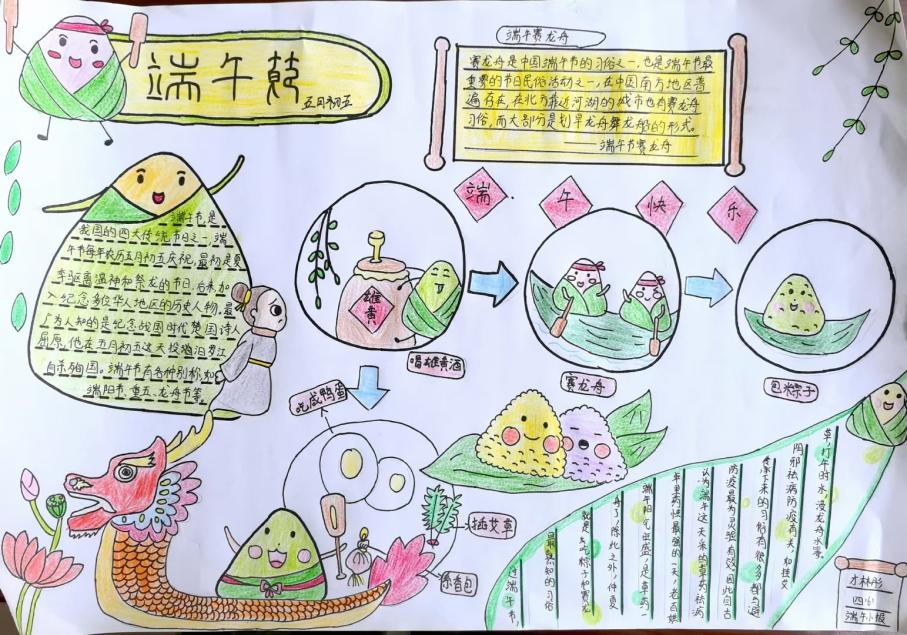 端午节
五月初五
端午赛龙舟
赛龙舟是中国端午节的习俗之一,也是端午节最
重要的节日民俗活动之一,在中国南方地区普
遍存在,在北方靠近河湖的城市也有赛龙舟
习俗,而大部分是划旱龙舟舞龙船的形式。
——端午节赛龙舟
端午快乐
端午节是
我国的四大传统节日之一,端
午节每年农历五月初五庆祝,最初是夏
季驱离瘟神和祭龙的节日,后来加
入纪念多位华人地区的历史人物。最
广为人知的是纪念战国时代楚国诗人
屈原,他在五月初五这天投汨罗江
自杀殉国。端午节有各种别称,如
端阳节、重五、龙舟节等。
雄黄
喝雄黄酒
赛龙舟
包粽子
吃咸鸭蛋
插艾草
香包
过端午节,
最熟知的习俗
就是吃粽子和赛龙
舟了,除此之外,仲夏
端午阳气旺盛,是草药一
年里药性最强的一天,老百姓
认为端午这天采的草药祛病
防疫最为灵验有效。因此自古
传下来的习俗有很多都与避
阴邪祛病防疫有关,如挂艾
草,打午时水,浸龙舟水等。
端午小报